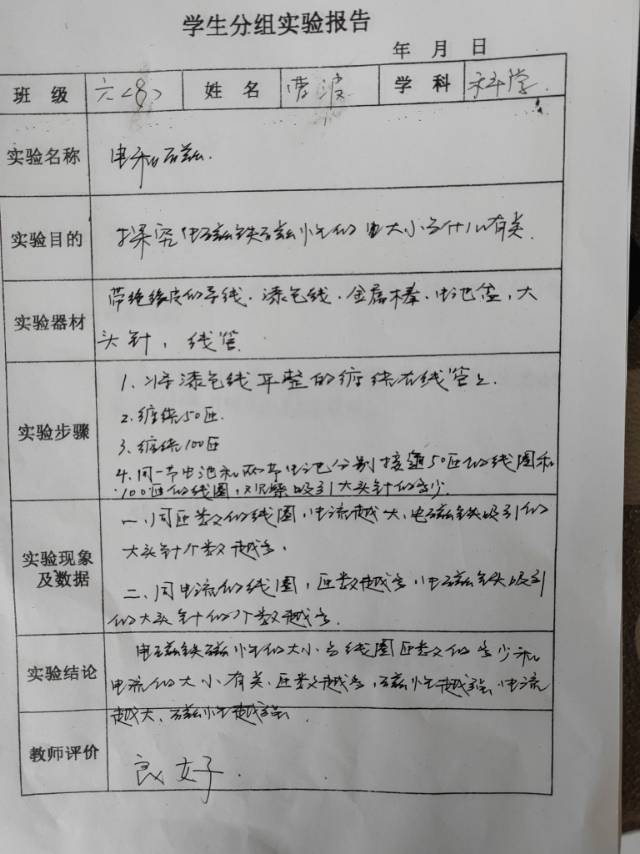 学生分组实验报告
年 月 日
班 级 六<8> 姓 名 曹波 学 科 科学.
实验名称 电和磁.
实验目的 探究电磁铁磁性的大小与什么有关.
实验器材 带绝缘皮的导线.漆包线.金属棒.电池盒,大
头针,线管
实验步骤 1、将漆包线平整的缠绕在线管上.
2.缠绕50匝.
3.缠绕100匝
4.同一节电池和两节电池分别接通50匝的线圈和
100匝的线圈,观察吸引大头针的多少.
实验现象及数据 一、同匝数的线圈,电流越大,电磁铁吸引的
大头针个数越多.
二、同电流的线圈,匝数越多,电磁铁吸引
的大头针的个数越多.
实验结论 电磁铁磁性的大小与线圈匝数的多少和
电流的大小有关.匝数越多,磁性越强,电流
越大、磁性越强.
教师评价 良好.